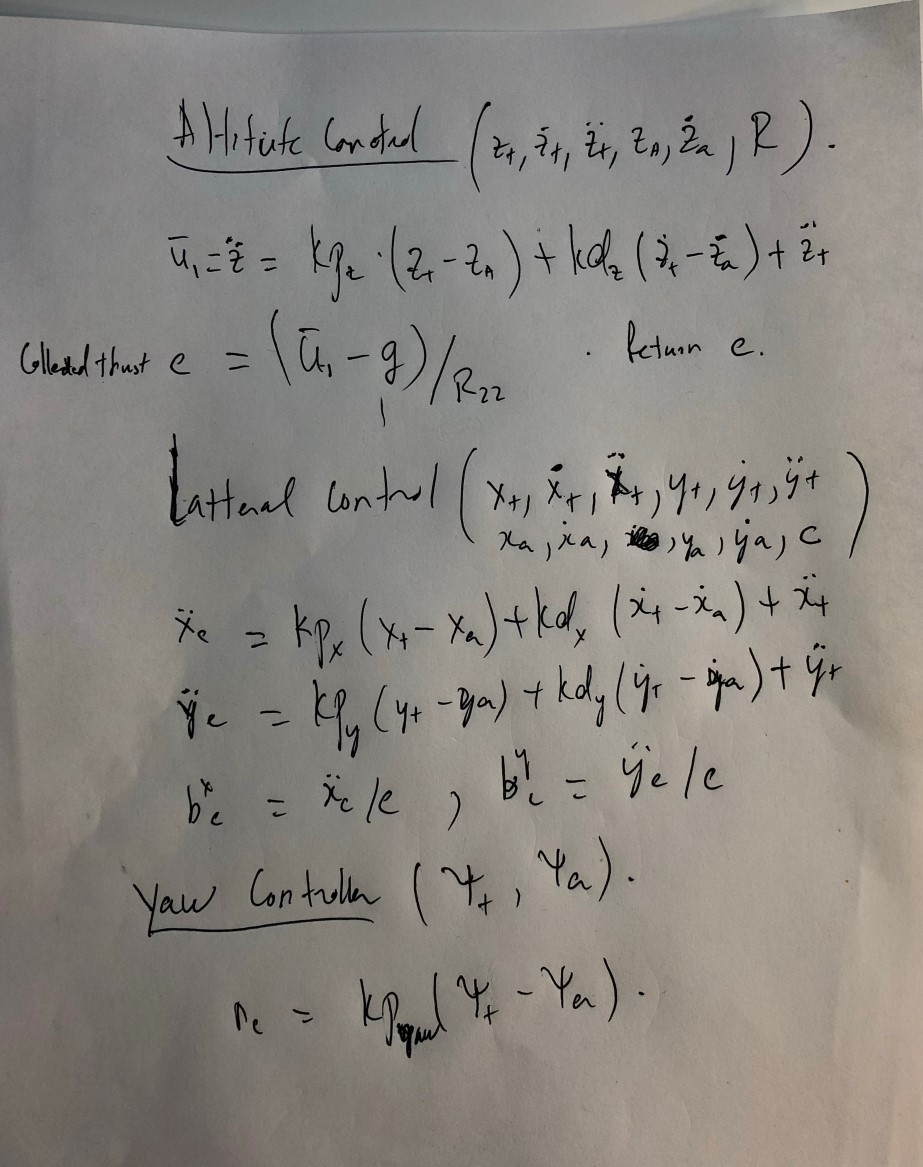 Altitute Control (z_t, ż_t, z̈_t, z_A, ż_a, R).
ū_1 = z̈ = kp_z · (z_t - z_A) + kd_z (ż_t - ż_a) + z̈_t
thrust c = (ū_1 - g) / R_22 . Return c.
Latteral control (x_t, ẋ_t, ẍ_t, y_t, ẏ_t, ÿ_t
x_a, ẋ_a, y_a, ẏ_a, c)
ẍ_c = kp_x (x_t - x_a) + kd_x (ẋ_t - ẋ_a) + ẍ_t
ÿ_c = kp_y (y_t - y_a) + kd_y (ẏ_t - ẏ_a) + ÿ_t
b^x_c = ẍ_c / c , b^y_c = ÿ_c / c
Yaw Controller (ψ_t, ψ_a).
r_c = kp_yaw (ψ_t - ψ_a).